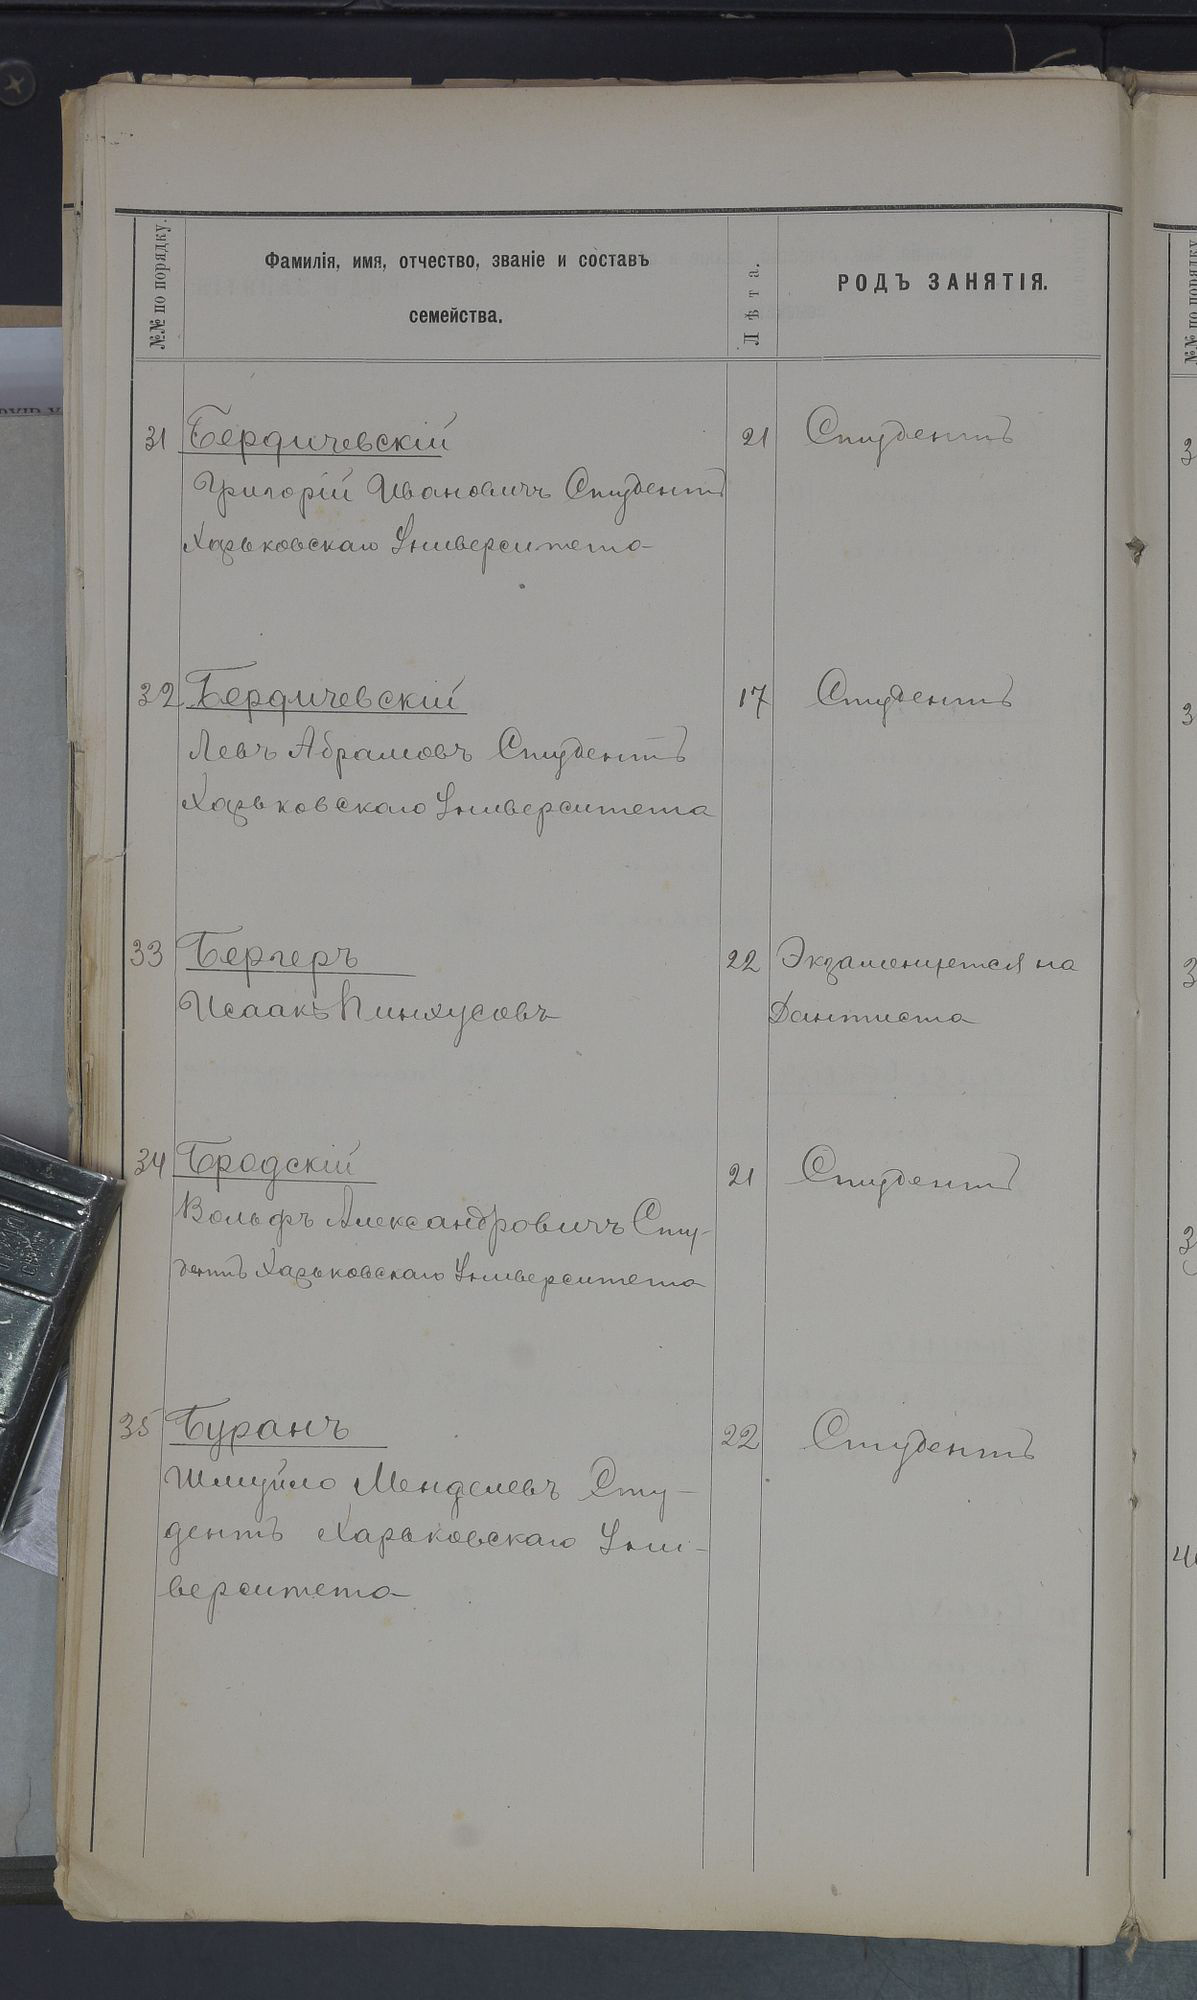 №№ по порядку.
Фамилія, имя, отчество, званіе и составъ
семейства.
Лѣта.
РОДЪ ЗАНЯТІЯ.
31 Бердичевскій 21 Студентъ
Григорій Ивановичъ Студентъ
Харьковскаго Университета
32 Бердичевскій 17 Студентъ
Левъ Абрамовъ Студентъ
Харьковскаго Университета
33 Бергеръ 22 Экзаменуется на
Исаакъ Пинхусовъ Дантиста
34 Бродскій 21 Студентъ
Вольфъ Александровичъ Сту-
дентъ Харьковскаго Университета
35 Буранъ 22 Студентъ
Шмуйло Менделевъ Сту-
дентъ Харьковскаго Уни-
верситета
№№ по порядку